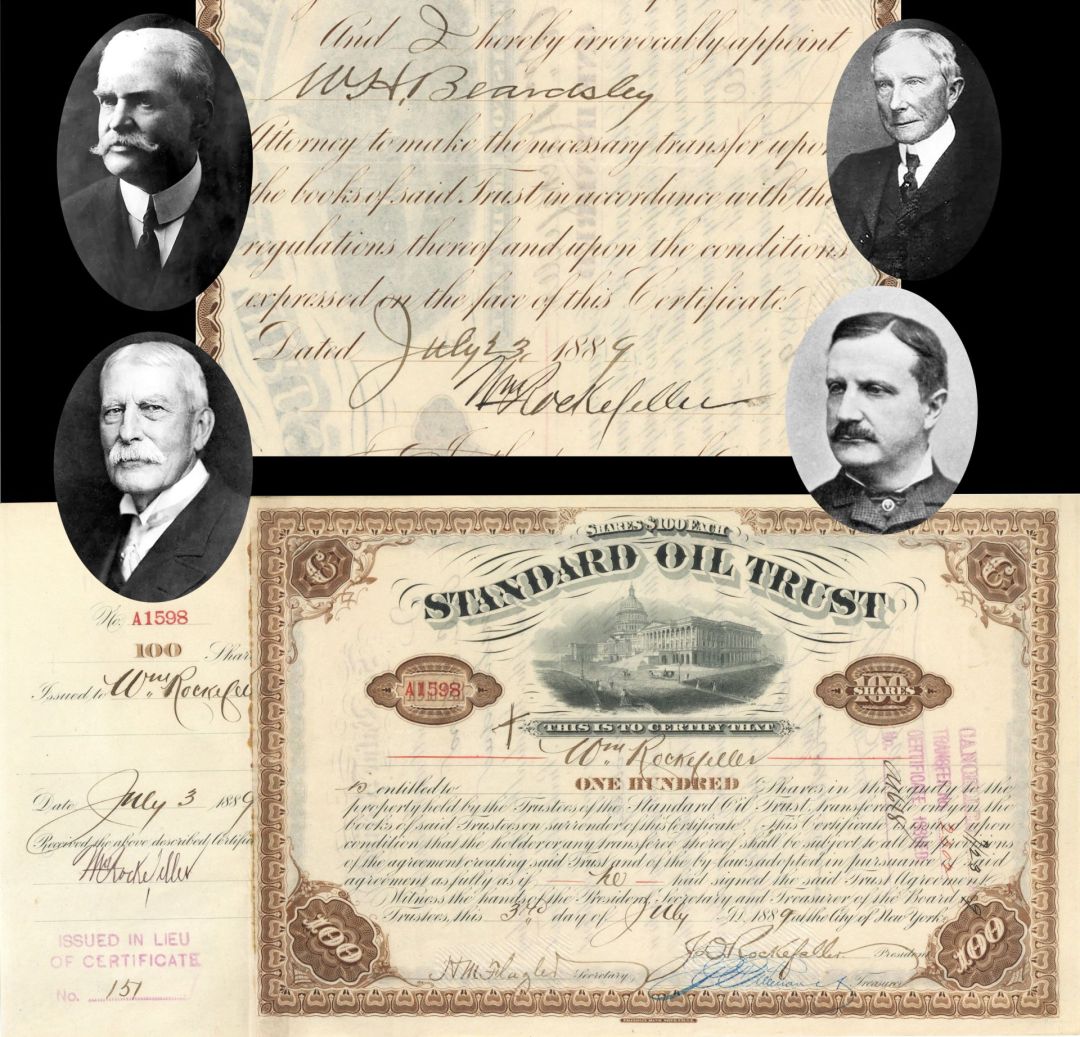 And I hereby irrevocably appoint
W.H. Beardsley
Attorney to make the necessary transfer upon
the books of said Trust in accordance with the
regulations thereof and upon the conditions
expressed on the face of this Certificate.
Dated July 23, 1889
Wm Rockefeller
No. A1598
100 Shar
Issued to Wm Rockefel
Date, July 3 1889
Received the above described Certific
Wm Rockefeller
ISSUED IN LIEU
OF CERTIFICATE
No. 151
SHARES $100 EACH
STANDARD OIL TRUST
A1598
100 SHARES
THIS IS TO CERTIFY THAT
Wm Rockefeller
is entitled to ONE HUNDRED Shares in the equity to the
property held by the Trustees of the Standard Oil Trust, transferable only on the
books of said Trustees on surrender of this Certificate. This Certificate is issued upon
condition that the holder or any transferee thereof shall be subject to all the provisions
of the agreement creating said Trust and of the by-laws adopted in pursuance of said
agreement as fully as if he had signed the said Trust Agreement.
Witness the hands of the President, Secretary and Treasurer of the Board of
Trustees, this 3rd day of July A.D. 1889 at the City of New York.
H M Flagler Secretary,
J D Rockefeller President
Treasurer
TRANSFER No.
CERTIFICATE
No.
100
100